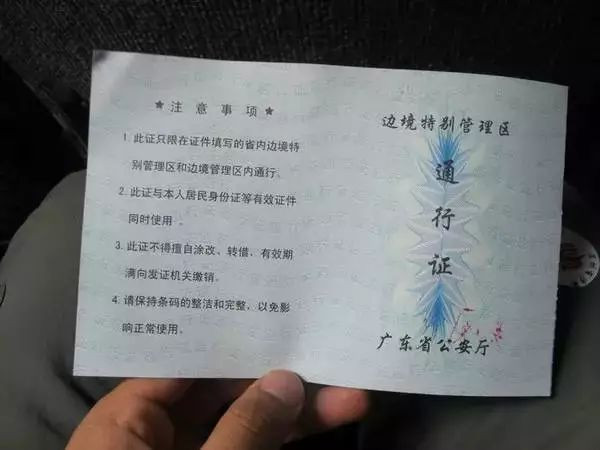 ★注意事项★
1.此证只限在证件填写的省内边境特
别管理区和边境管理区内通行。
2.此证与本人居民身份证等有效证件
同时使用。
3.此证不得擅自涂改、转借、有效期
满向发证机关缴销。
4.请保持条码的整洁和完整、以免影
响正常使用。
边境特别管理区
通
行
证
广东省公安厅